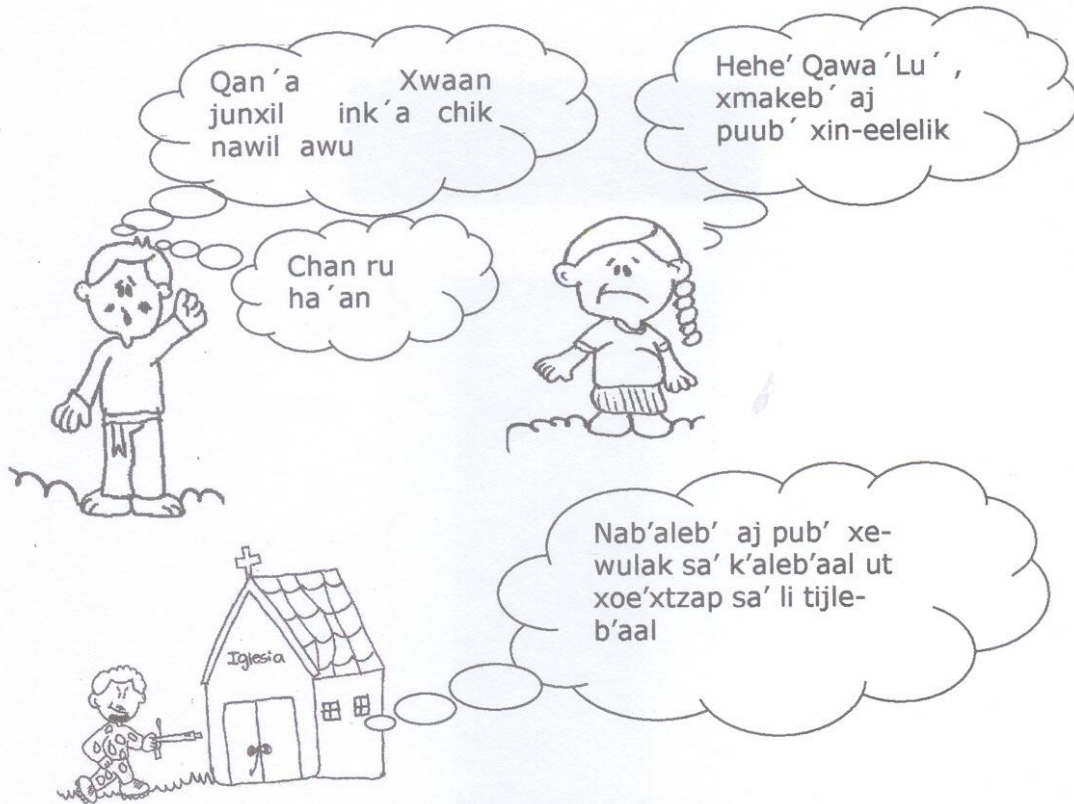 Qan´a Xwaan
junxil ink´a chik
nawil awu
Hehe’ Qawa´Lu´ ,
xmakeb´ aj
puub´ xin-eelelik
Chan ru
ha´an
Nab’aleb’ aj pub’ xe-
wulak sa’ k’aleb’aal ut
xoe’xtzap sa’ li tijle-
b’aal
Iglesia